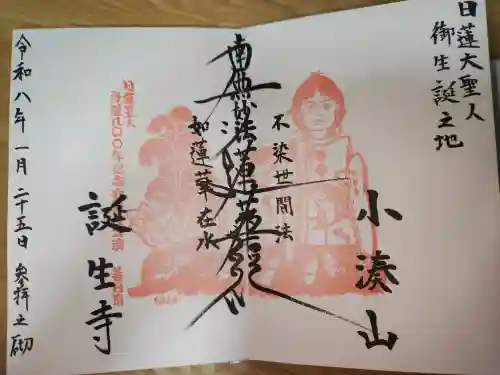 日蓮大聖人
御生誕之地
小湊山
不染世間法
南無妙法蓮華経
如蓮華在水
誕生寺
令和八年一月二十五日 參拝之砌